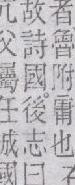 者魯附庸也
故詩國。後志曰
亢父屬任城國